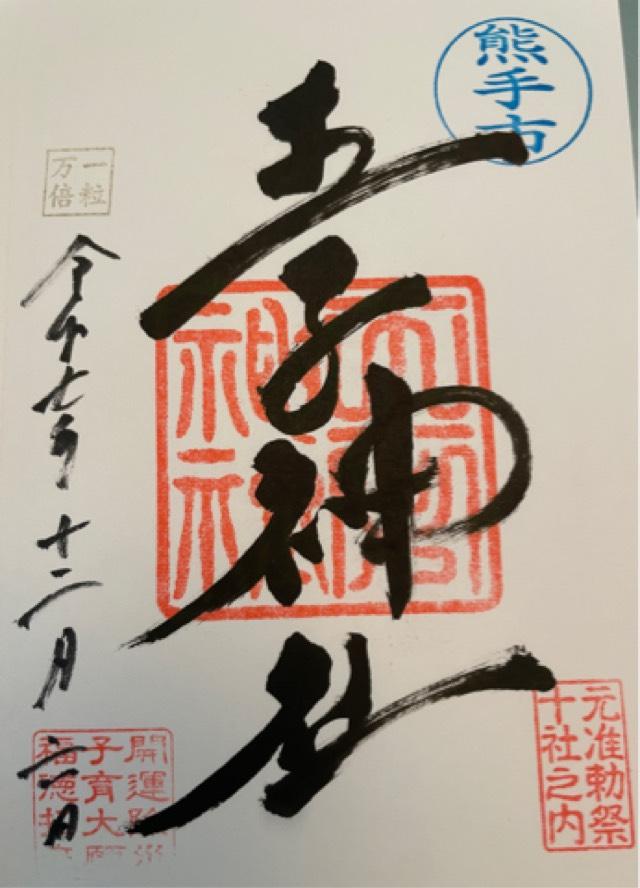 熊手市
一粒
万倍
王子神社
令和七年十二月六日
元准勅祭
十社之内
開運除災
子育大願
福徳招